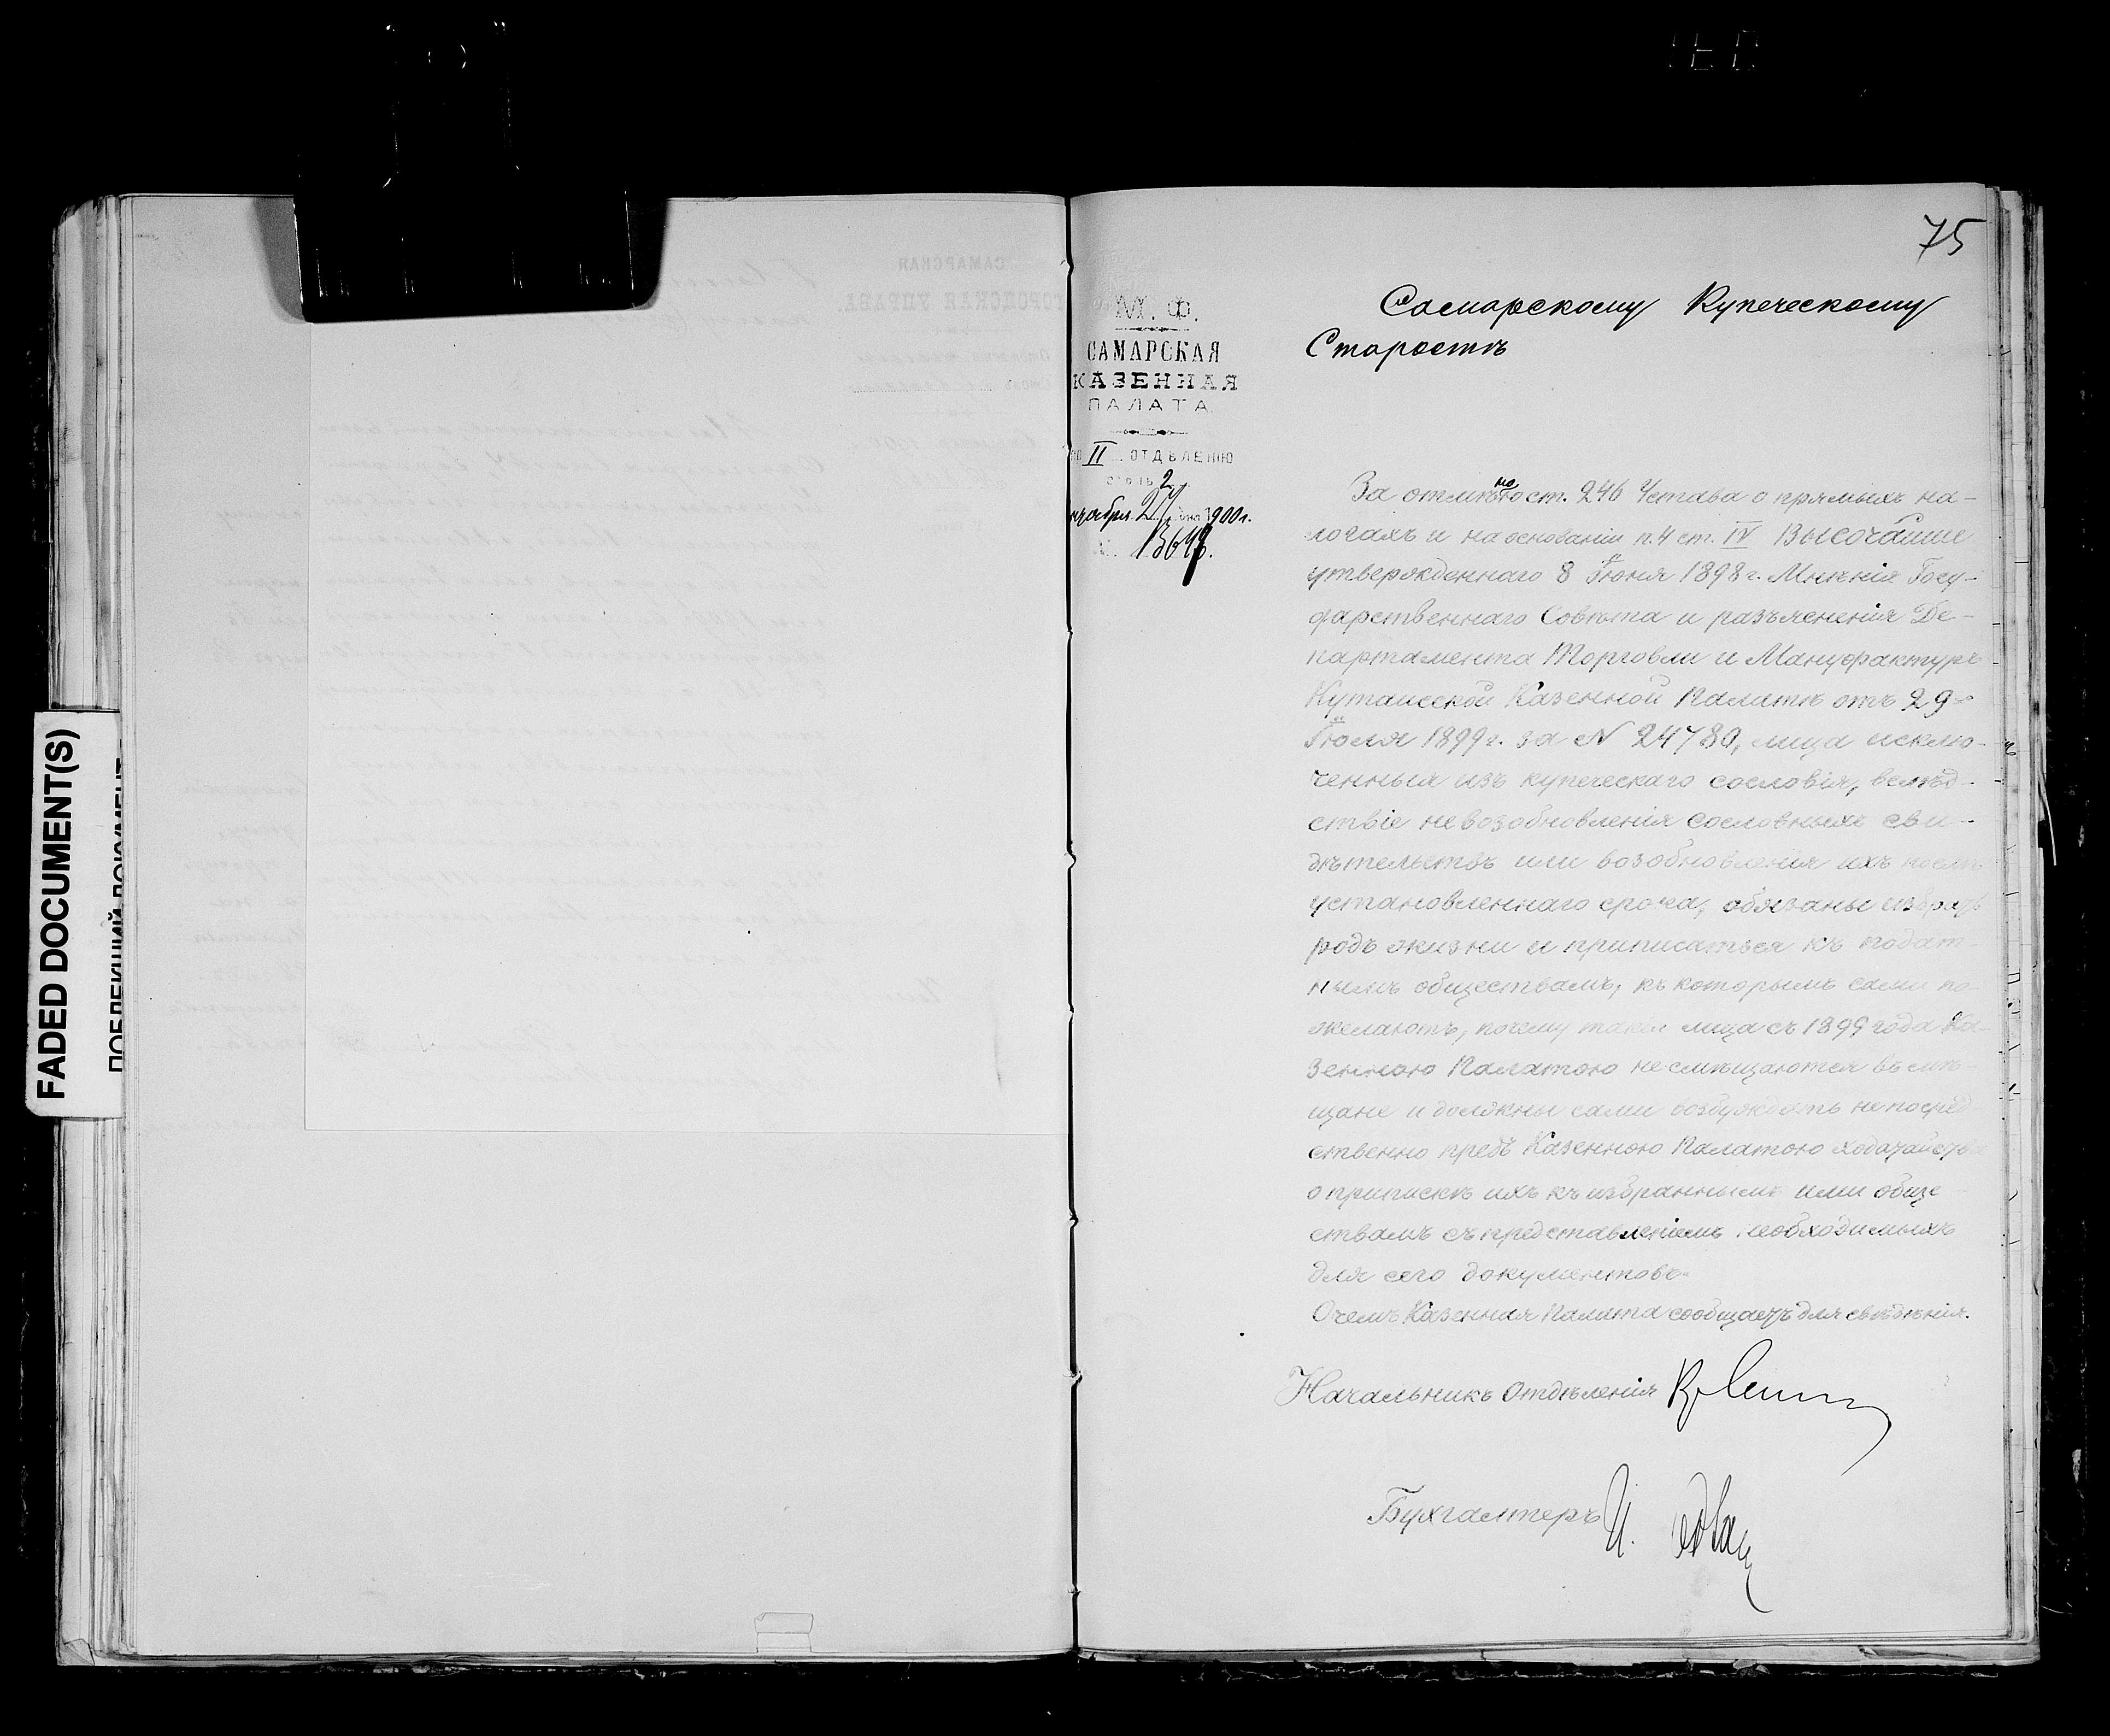 FADED DOCUMENT(S)
75
М. Ф.
САМАРСКАЯ
КАЗЕННАЯ
ПАЛАТА.
II ОТДѢЛЕНІЮ
столъ 2
дня 1900 г.
Самарскому Купеческому
Старостѣ
За отмѣною ст. 246 Устава о прямыхъ на-
логахъ и на основаніи п. 4 ст. IV ВЫСОЧАЙШЕ
утвержденнаго 8 Іюня 1898 г. Мнѣнія Госу-
дарственнаго Совѣта и разъясненія Де-
партамента Торговли и Мануфактуръ
Кутаисской Казенной Палатѣ отъ 29
Іюля 1899 г. за N 24780, лица исклю-
ченныя изъ купеческаго сословія, вслѣд-
ствіе невозобновленія сословныхъ сви-
дѣтельствъ или возобновленія ихъ послѣ
установленнаго срока, обязаны избрать
родъ жизни и приписаться къ подат-
нымъ обществамъ, къ которымъ сами по-
желаютъ, почему такія лица съ 1899 года Ка-
зенною Палатою не смѣщаются въ мѣ-
щане и должны сами возбуждать непосред-
ственно предъ Казенною Палатою ходатайства
о припискѣ ихъ къ избраннымъ ими обще-
ствамъ съ представленіемъ необходимыхъ
для сего документовъ.
О чемъ Казенная Палата сообщаетъ для свѣдѣнія.
Начальникъ Отдѣленія
Бухгалтеръ